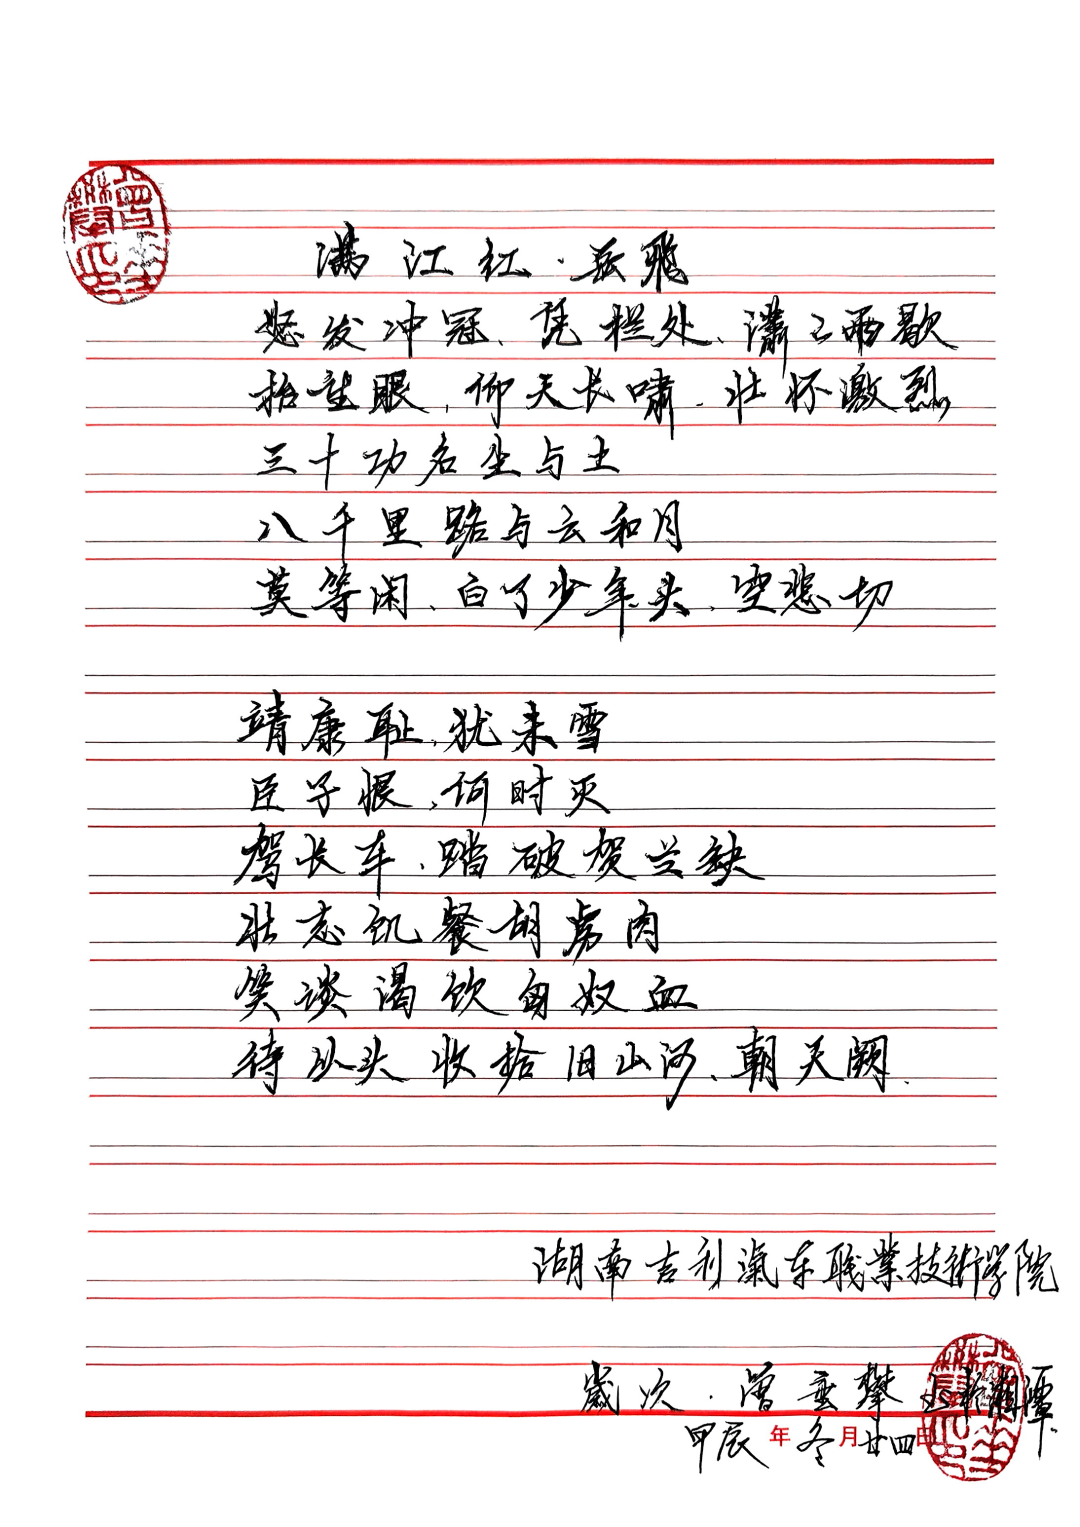 满江红·岳飛
怒发冲冠、凭栏处、瀟々雨歇
抬望眼,仰天长啸.壮怀激烈
三十功名尘与土
八千里路与云和月
莫等闲、白了少年头、空悲切
靖康耻,犹未雪
臣子恨,何时灭
驾长车,踏破贺兰缺
壮志饥餐胡虏肉
笑谈渴饮匈奴血
待从头收拾旧山河、朝天阙.
湖南吉利氣车職業技術学院
歲次·曾垂攀 湘潭
甲辰年冬月廿四日